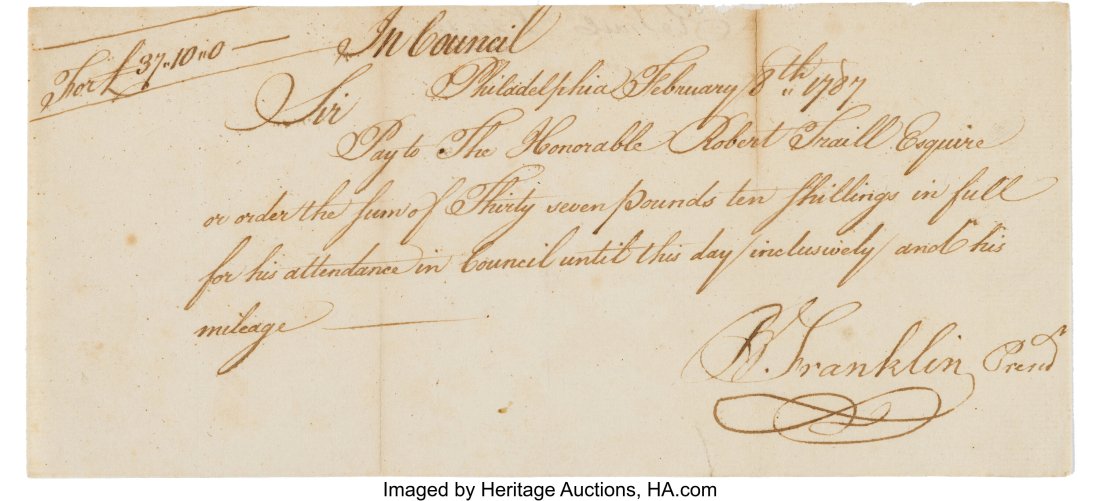 For £37"10"0
In Council
Philadelphia February 8th 1787
Sir
Pay to The Honorable Robert Traill Esquire
or order the sum of Thirty seven pounds ten shillings in full
for his attendance in Council until this day /inclusively/ and his
mileage
B. Franklin Presidt
Imaged by Heritage Auctions, HA.com